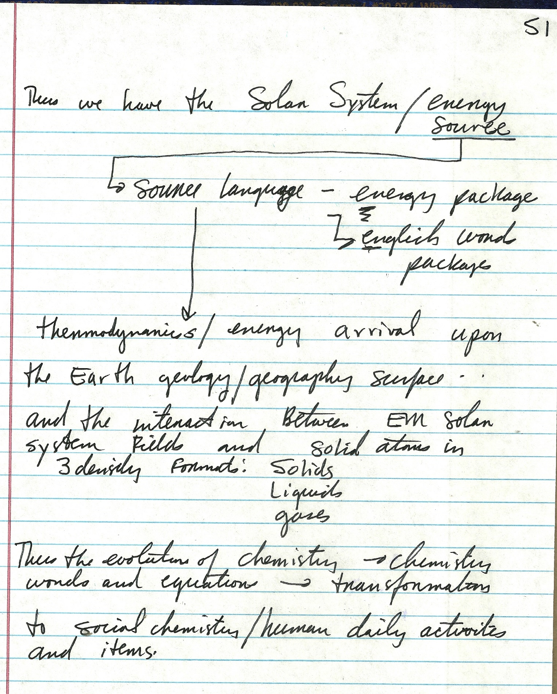 51
Thus we have the Solar System / energy
source
source language - energy package
english words
packages
thermodynamics / energy arrival upon
the Earth geology / geography surface . .
and the interaction Between EM solar
system fields and solid atoms in
3 density formats: Solids
Liquids
gases
Thus the evolution of chemistry → chemistry
words and equations → transformations
to social chemistry / human daily activities
and items.